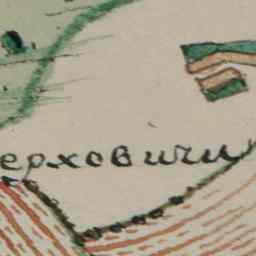 ерховичи